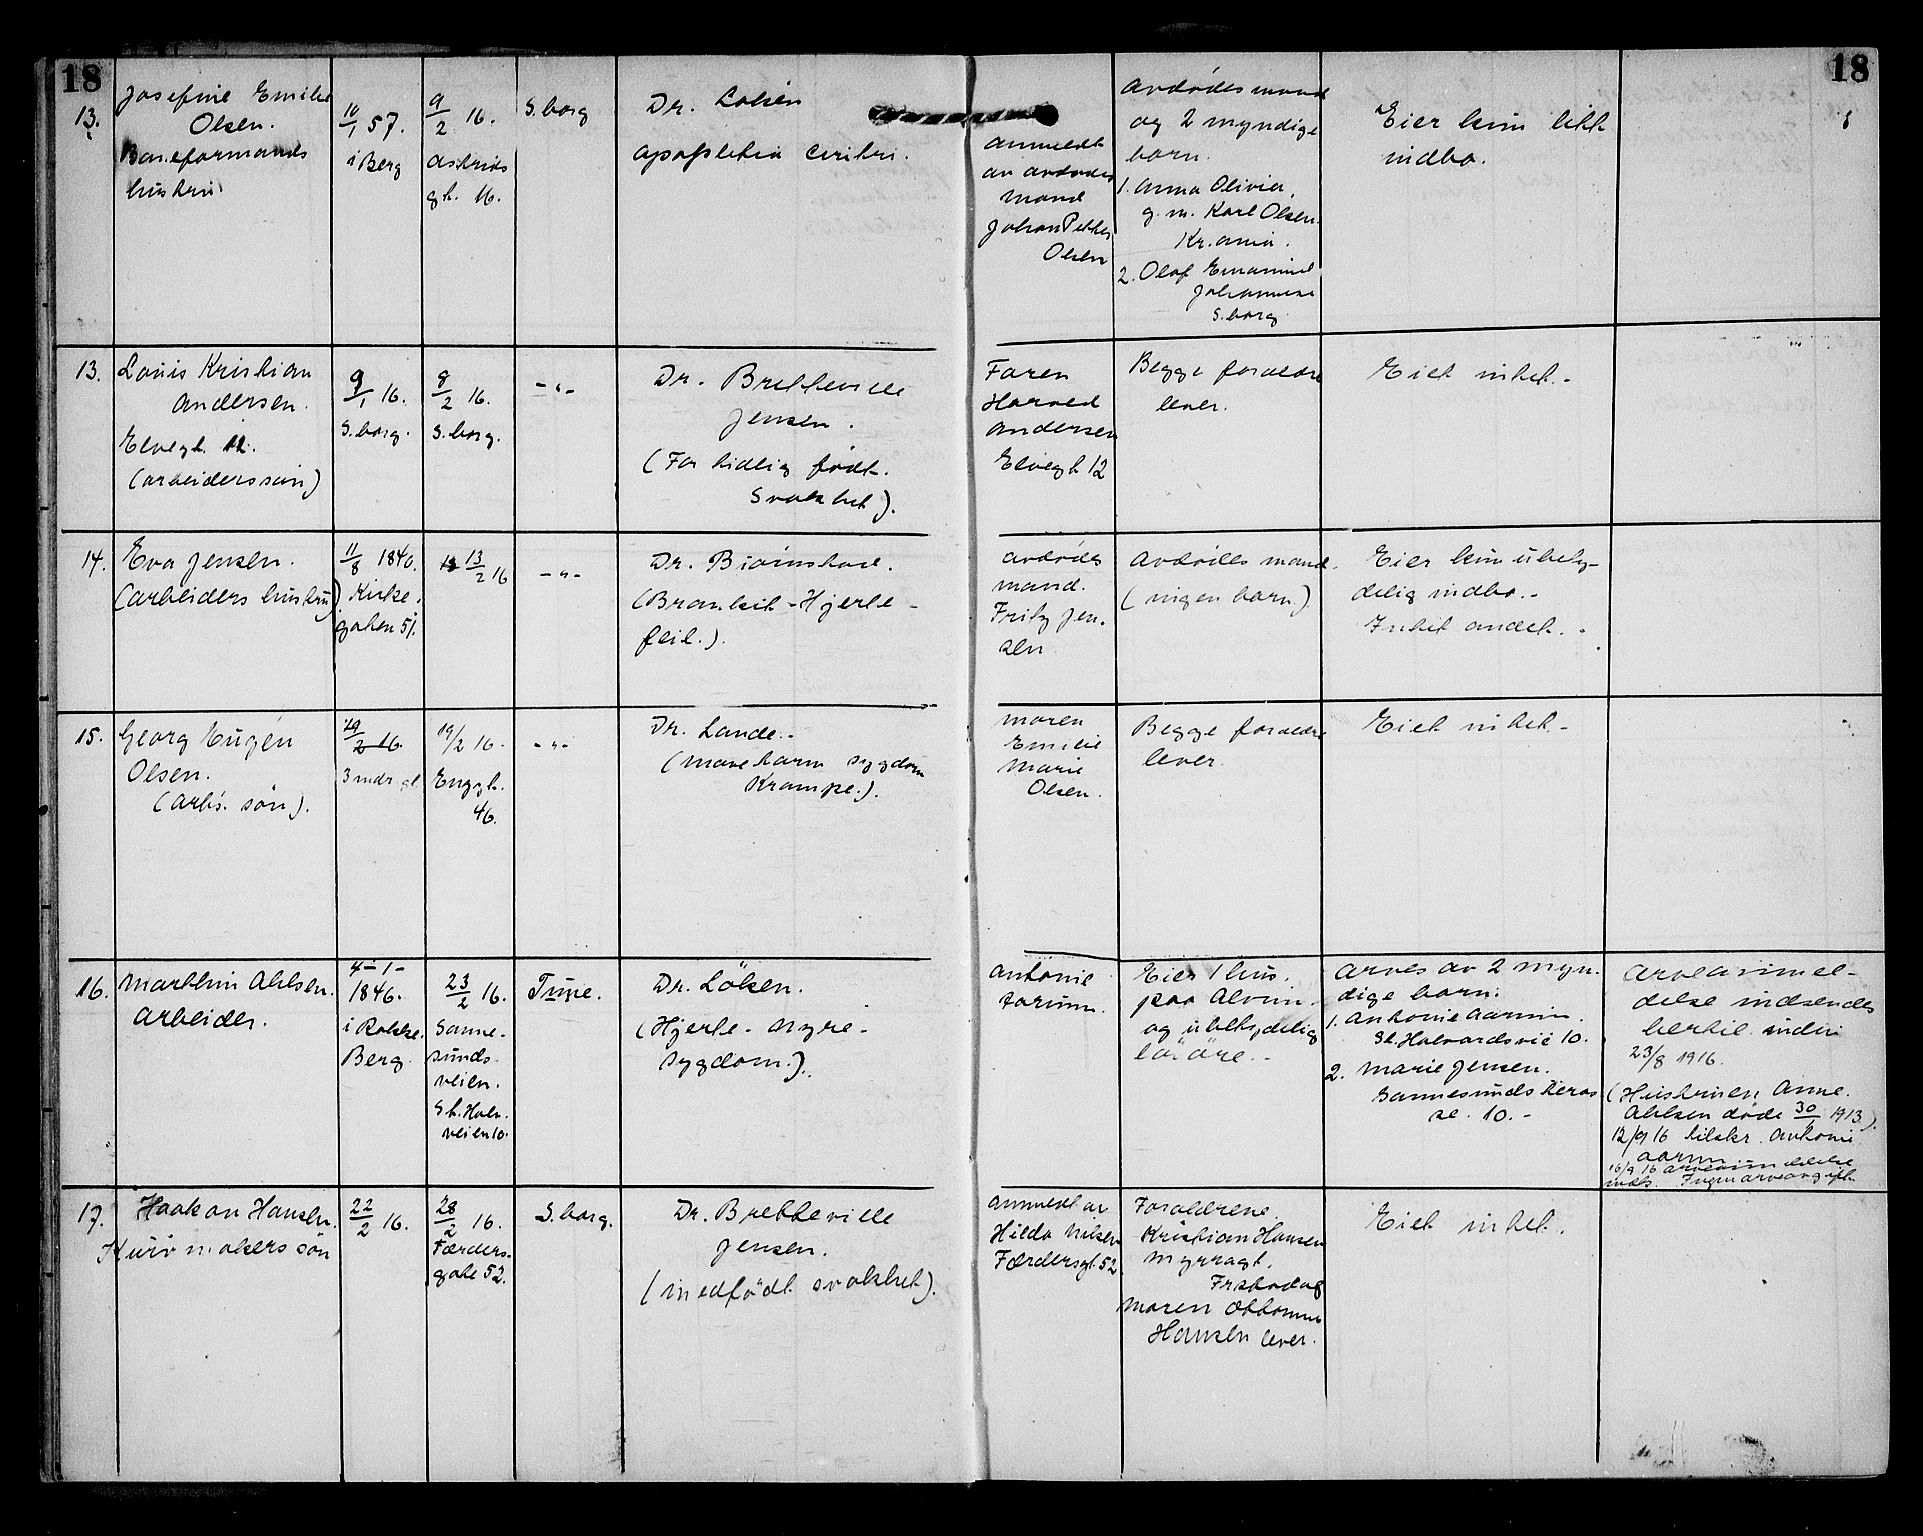 18
18
13.
Josefine Emilie
Olsen.
Baneformands
hustru
10/1 57.
i Berg
9/2 16.
Astrids
gt. 16.
S.borg
Dr. Løken
apopleksia cerebri.
anmeldt
av avdødes
mand
Johan Petter
Olsen
Avdødes mand
og 2 myndige
barn.
1. Anna Olivia,
g. m. Karl Olsen.
Kr.ania.
2. Olaf Emanuel
Johannese
S.borg
Eier kun litt
indbo.
13.
Louis Kristian
Andersen.
Elvegt. 12.
(arbeiderssøn)
9/1 16.
S.borg.
8/2 16.
S.borg.
-"-
Dr. Bretteville
Jensen.
(For tidlig født.
Svakhet).
Faren
Harved
Andersen
Elvegt 12
Begge forældre
lever.
Eiet intet.-
14.
Eva Jensen.
(arbeiders hustru)
11/8 1840.
Kirke-
gaten 51.
13/2 16
-"-
Dr. Biørnstad.
(Bronkit - Hjerte-
feil.).
avdødes
mand.
Fritz Jen-
sen
Avdødes mand.
(ingen barn)
Eier kun ubety-
delig indbo.-
Intet andet.-
15.
Georg Eugén
Olsen.
(arb's. søn).
19/2 16.
3 mdr. gl
19/2 16.
Enggt.
46.
-"-
Dr. Lande.-
(Mavetarm sygdom
Krampe.).
Maren
Emilie
Marie
Olsen.
Begge forældre
lever.
Eiet intet.-
16.
Marthin Ahlsen.
Arbeider.
4-1-
1846.
i Rokke.
Berg.
23/2 16.
Sanne-
sunds-
veien.
St. Halv.
veien 10.
Tune.
Dr. Löken.
(Hjerte- nyre-
sygdom.).
Antonie
Aarum.
Eier 1 hus.
paa Alvim.
og ubetydelig
løsøre.-
Arves av 2 myn-
dige barn:
1. Antonie Aarum.
St. Halvardsvei 10.
2. Marie Jensen.
Sannesunds teras
se. 10.-
Arveanmel-
delse indsendes
hertil inden
23/8 1916.
(Hustruen Anne
Ahlsen døde 30/1 1913).
12/9 16 tilskr. Antonie
Aarum
16/9 16 arveanmeldelse
inds. Ingen arveavgift.
17.
Haakon Hansen.
Kurvmakers søn
22/2 16.
28/2 16.
Færders-
gate 52.
S.borg.
Dr. Bretteville
Jensen.
(medfødt svakhet).
anmeldt av
Hilda Nilsen
Færdersgt. 52
Forældrene.
Kristian Hansen
Myrragt.
Frstad og
Maren Ottomine
Hansen lever.
Eiet intet.